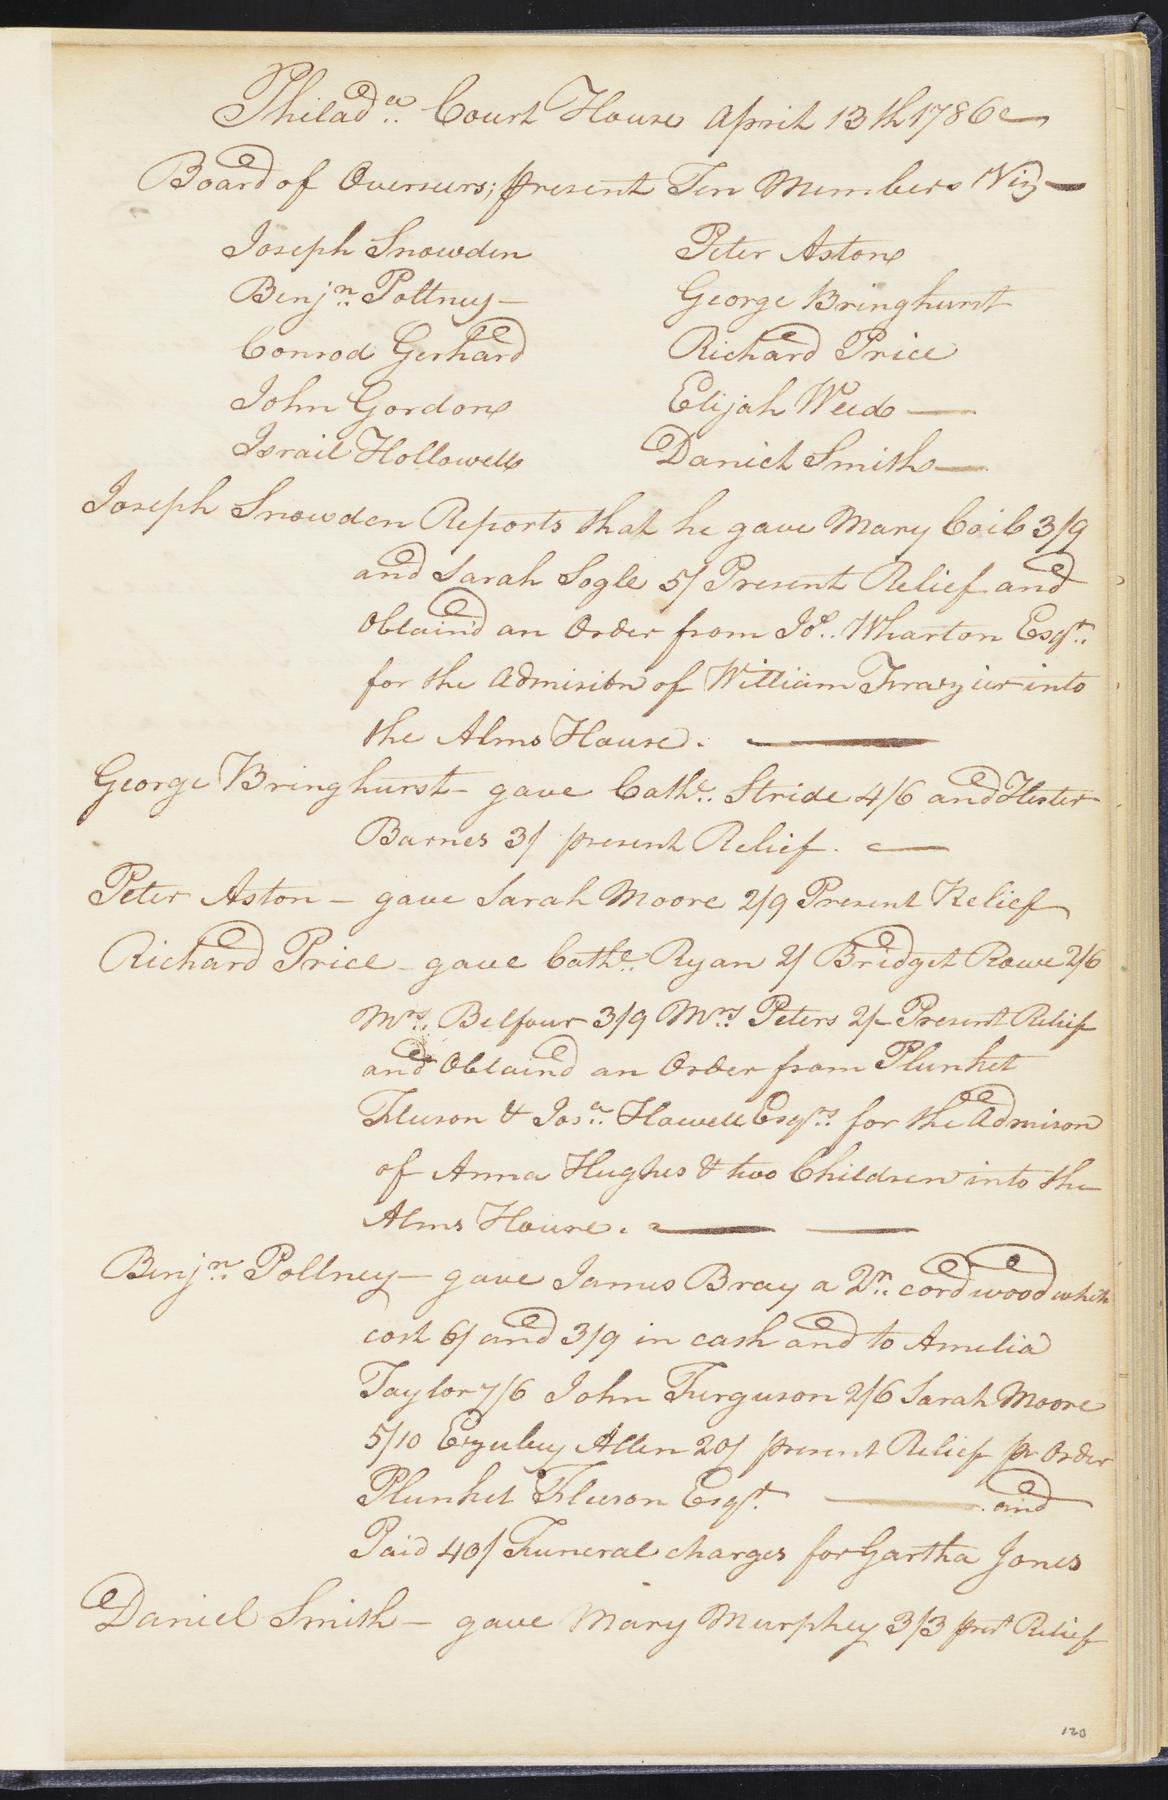 Philad.a Court House April 13th 1786
Board of Overseers; present Ten Members Viz
Joseph Snowden Peter Aston
Benjn. Poltney George Bringhurst
Conrod Gerhard Richard Price
John Gordon Elijah Weed
Israil Hollowell Daniel Smith
Joseph Snowden Reports that he gave Mary 3/9
and Sarah Sogle 5/ Present Relief and
Obtain'd an Order from Jos. Wharton Esqr.
for the Admisitn of William Frazier into
the Alms House.
George Bringhurst - gave Cathe. Stride 4/6 and Hester
Barnes 3/ present Relief.
Peter Aston - gave Sarah Moore 2/9 Present Relief
Richard Price - gave Cathe. Ryan 2/ Bridget Rowe 2/6
Mrs. Belfour 3/9 Mrs. Peters 2/- Present Relief
and Obtaind an Order from Plunket
Fleeson & Josa. Howell Esqrs. for the Admison
of Anna Hughes & two Children into the
Alms House.
Benjn. Poltney - gave James Bray a 2r. cord wood which
cost 6/ and 3/9 in cash and to Amelia
Taylor 7/6 John Ferguson 2/6 Sarah Moore
5/10 Allen 20/ present Relief pr Order
Plunket Fleeson Esqr. and
Paid 40/ Funeral charges for Gartha Jones
Daniel Smith - gave Mary Murphey 3/3 prest Relief
120